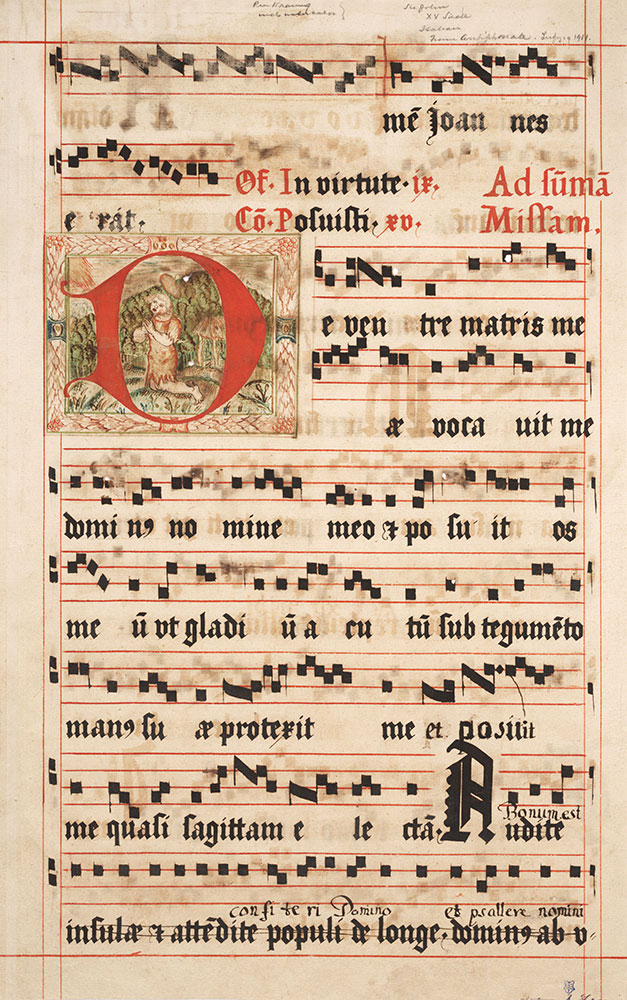 St John
XV Saec
Italian
from Antiphonale. Leipzig 1911.
mē Joan nes
Of. In virtute. ix. Ad sūmā
e rat. Cō. Posuisti. xv. Missam.
D
e ven tre matris me
æ voca uit me
domi nꝰ no mine meo & po su it os
me ū vt gladi ū a cu tū sub tegumēto
manꝰ su æ protexit me et posuit
me quasi sagittam e le ctā. Audite
Bonum est
confi te ri Domino et psallere nomini
insulæ & attēdite populi de longe. dominꝰ ab v-